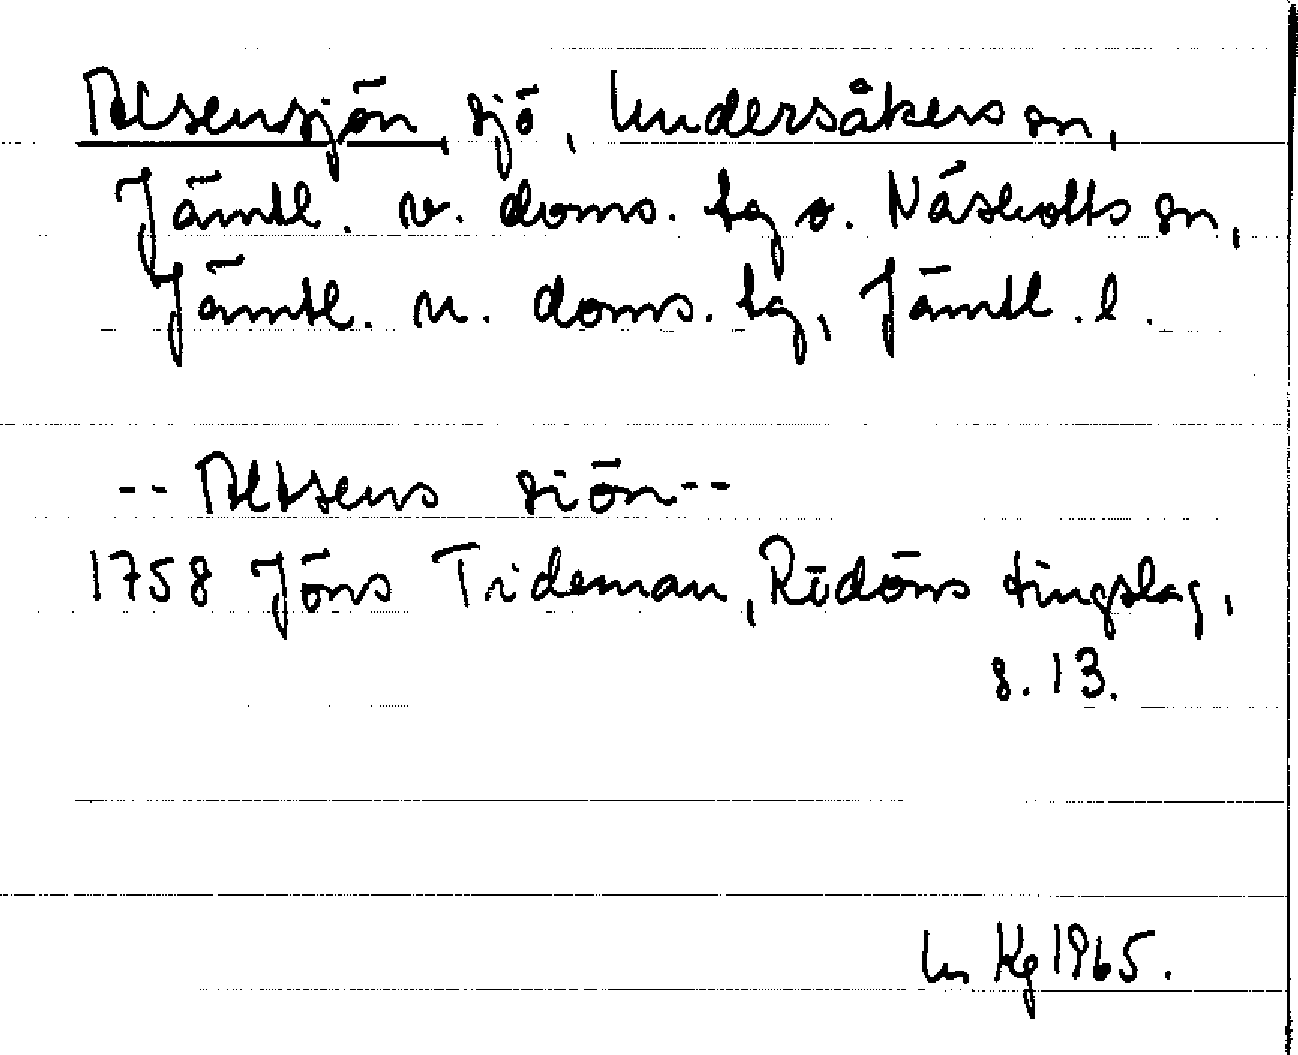 Alsensjön, sjö, Undersåkers sn,
Jämtl. v. doms. tg o. Näskotts sn,
Jämtl. n. doms. tg, Jämtl. l.
-- Altsens siön --
1758 Jöns Tideman, Rödöns tingslag,
s. 13.
Kg 1965.